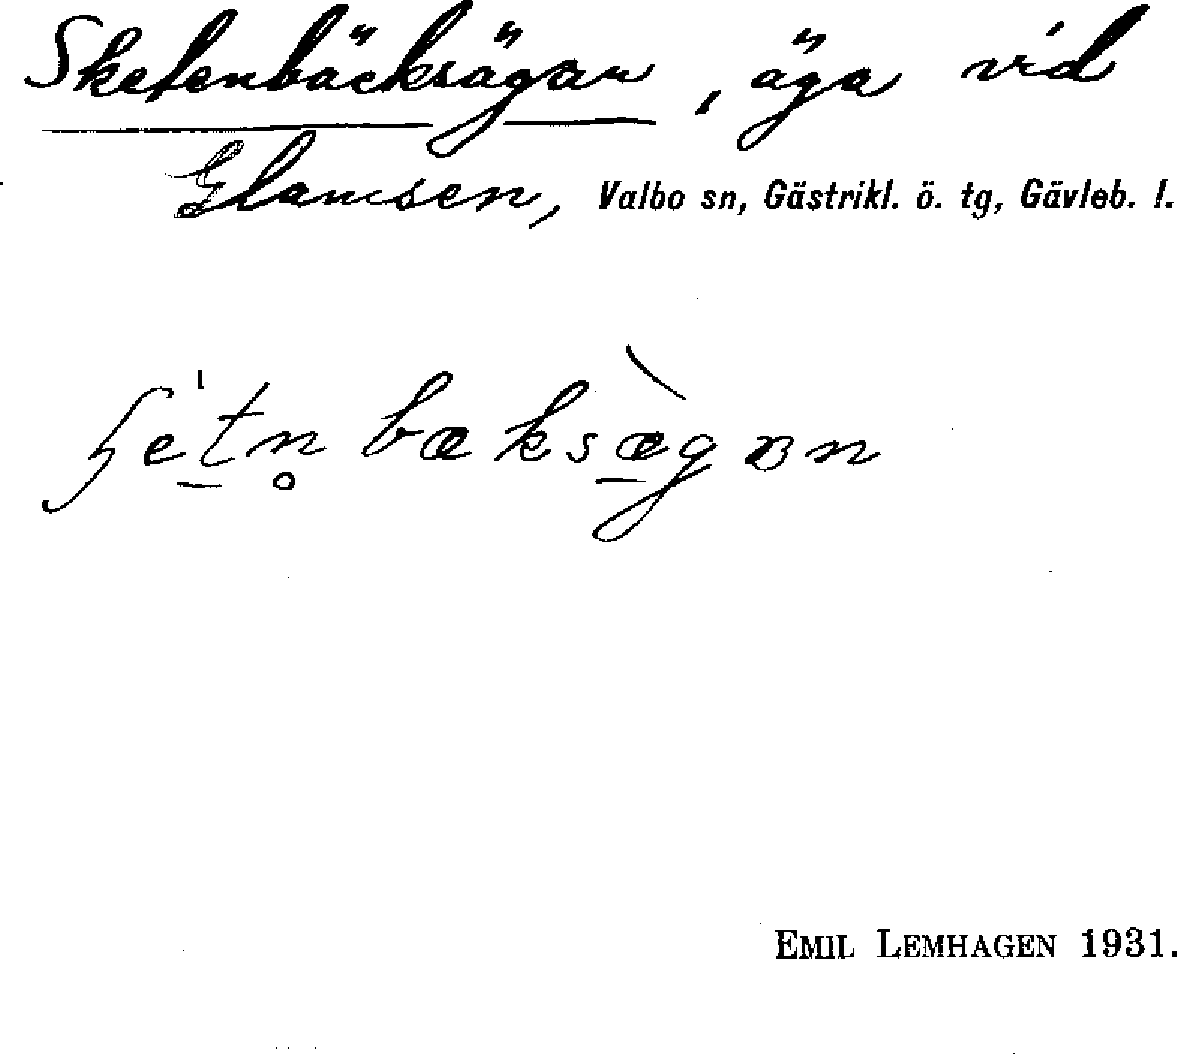 Sketenbäcksägan, äga vid
Glamsen, Valbo sn, Gästrikl. ö. tg, Gävleb. l.
EMIL LEMHAGEN 1931.